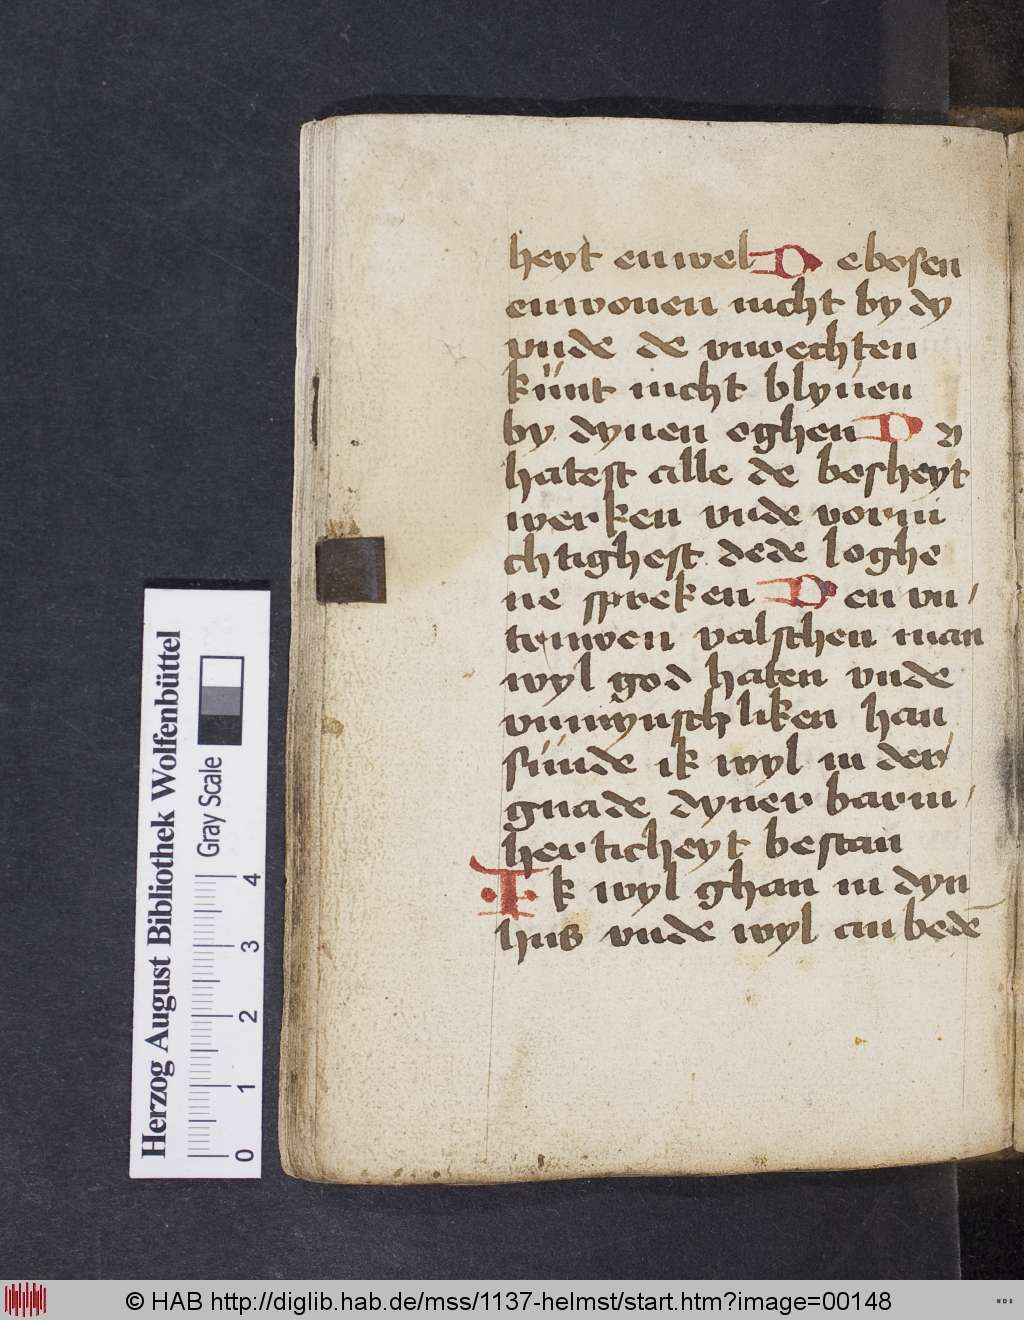 heyt en wel De bosen
en wonen nicht by dy
vnde de vnrechten
kunt nicht blyuen
by dynen oghen Du
hatest alle de bosheyt
werken vnde vorni
chtighest de de loghe
ne spreken Den vn
truwen valschen man
wyl god haten vnde
vnmynschliken han
sunde ik wyl in der
gnade dyner barm
herticheyt bestan
Ik wyl ghan in dyn
hus vnde wyl anbede
Herzog August Bibliothek Wolfenbüttel
Gray Scale
0 1 2 3 4
© HAB http://diglib.hab.de/mss/1137-helmst/start.htm?image=00148